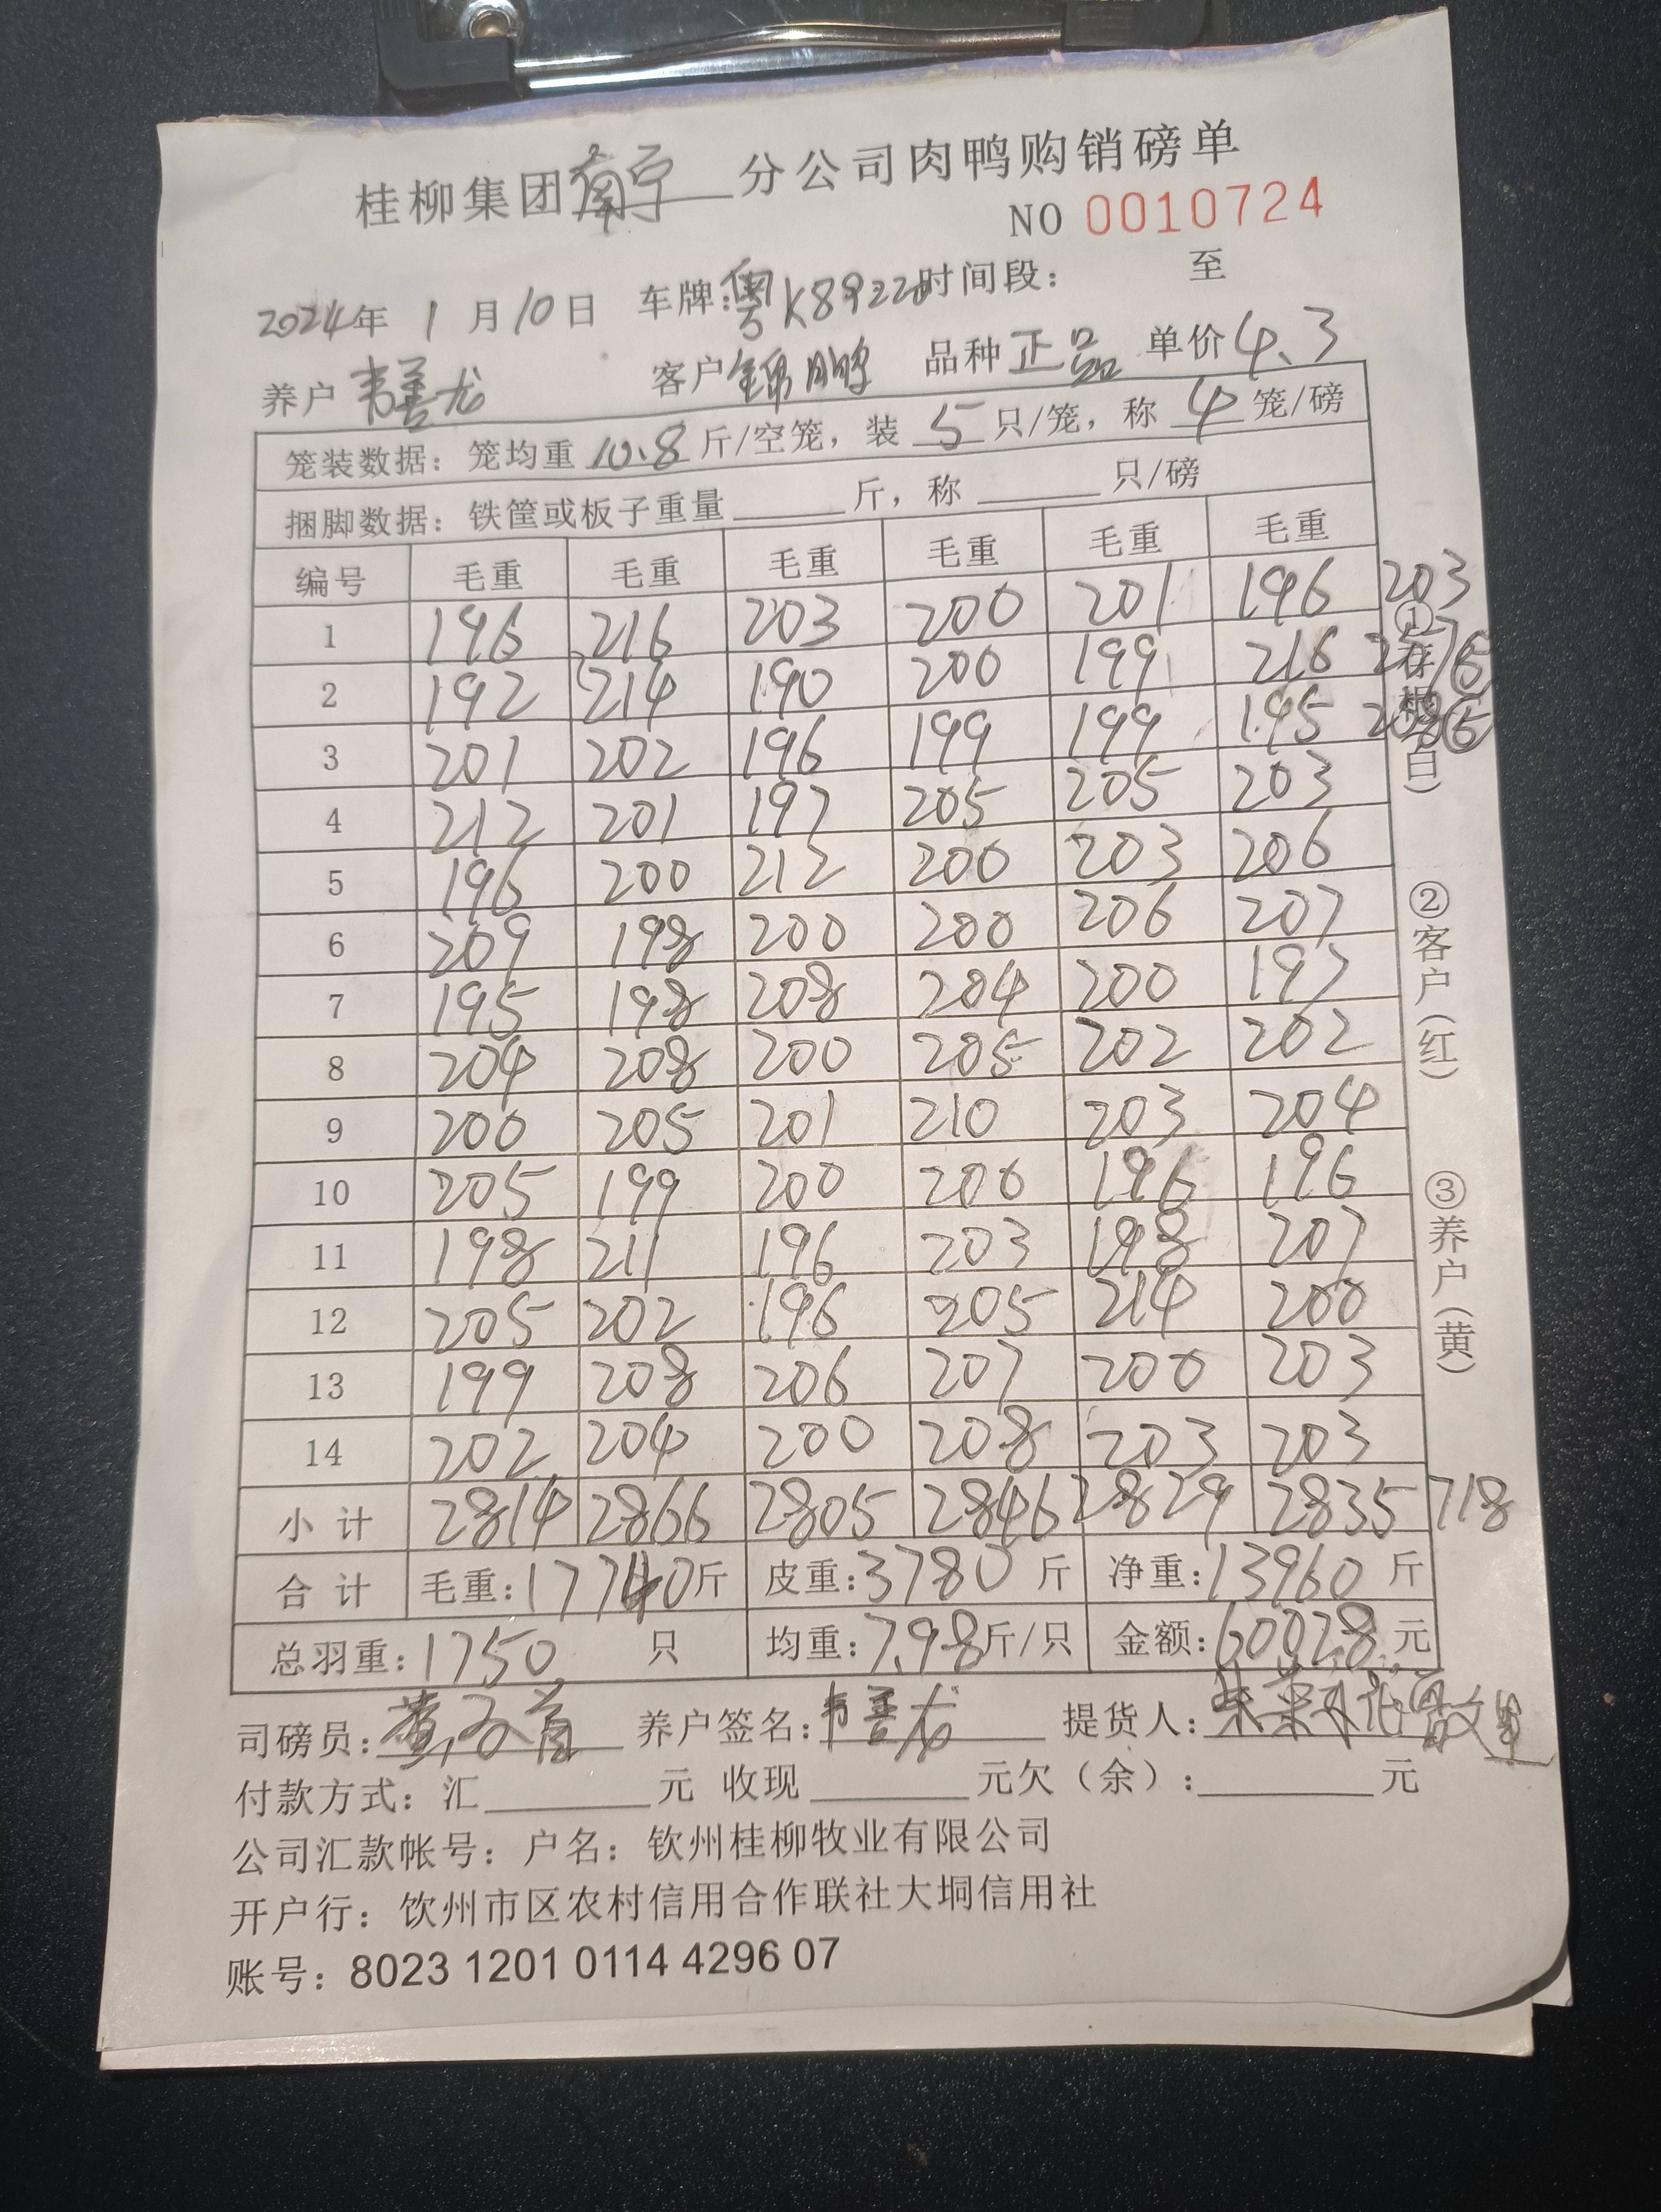 桂柳集团南宁分公司肉鸭购销磅单
NO 0010724
2024年 1 月 10 日 车牌:粤K89220 时间段: 至
养户 韦善龙 客户 锦鹏 品种 正品 单价 4.3
笼装数据: 笼均重 10.8 斤/空笼, 装 5 只/笼, 称 4 笼/磅
捆脚数据: 铁筐或板子重量 斤, 称 只/磅
编号 毛重 毛重 毛重 毛重 毛重 毛重
1 196 216 203 200 201 196 203
2 192 214 190 200 199 216
3 201 202 196 199 199 195
4 212 201 197 205 205 203
5 196 200 212 200 203 206
6 209 198 200 200 206 207
7 195 198 208 204 200 197
8 204 208 200 205 202 202
9 200 205 201 210 203 204
10 205 199 200 200 196 196
11 198 211 196 203 198 207
12 205 202 196 205 214 200
13 199 208 206 207 200 203
14 202 204 200 208 203 203
小计 2814 2866 2805 2846 2829 2835 718
合计 毛重:17740斤 皮重:3780 斤 净重:13960 斤
总羽重:1750 只 均重:7.98斤/只 金额:60028 元
司磅员: 养户签名:韦善龙 提货人:
付款方式: 汇 元 收现 元欠(余): 元
公司汇款帐号: 户名: 钦州桂柳牧业有限公司
开户行: 饮州市区农村信用合作联社大垌信用社
账号: 8023 1201 0114 4296 07
①存根(白)
②客户(红)
③养户(黄)